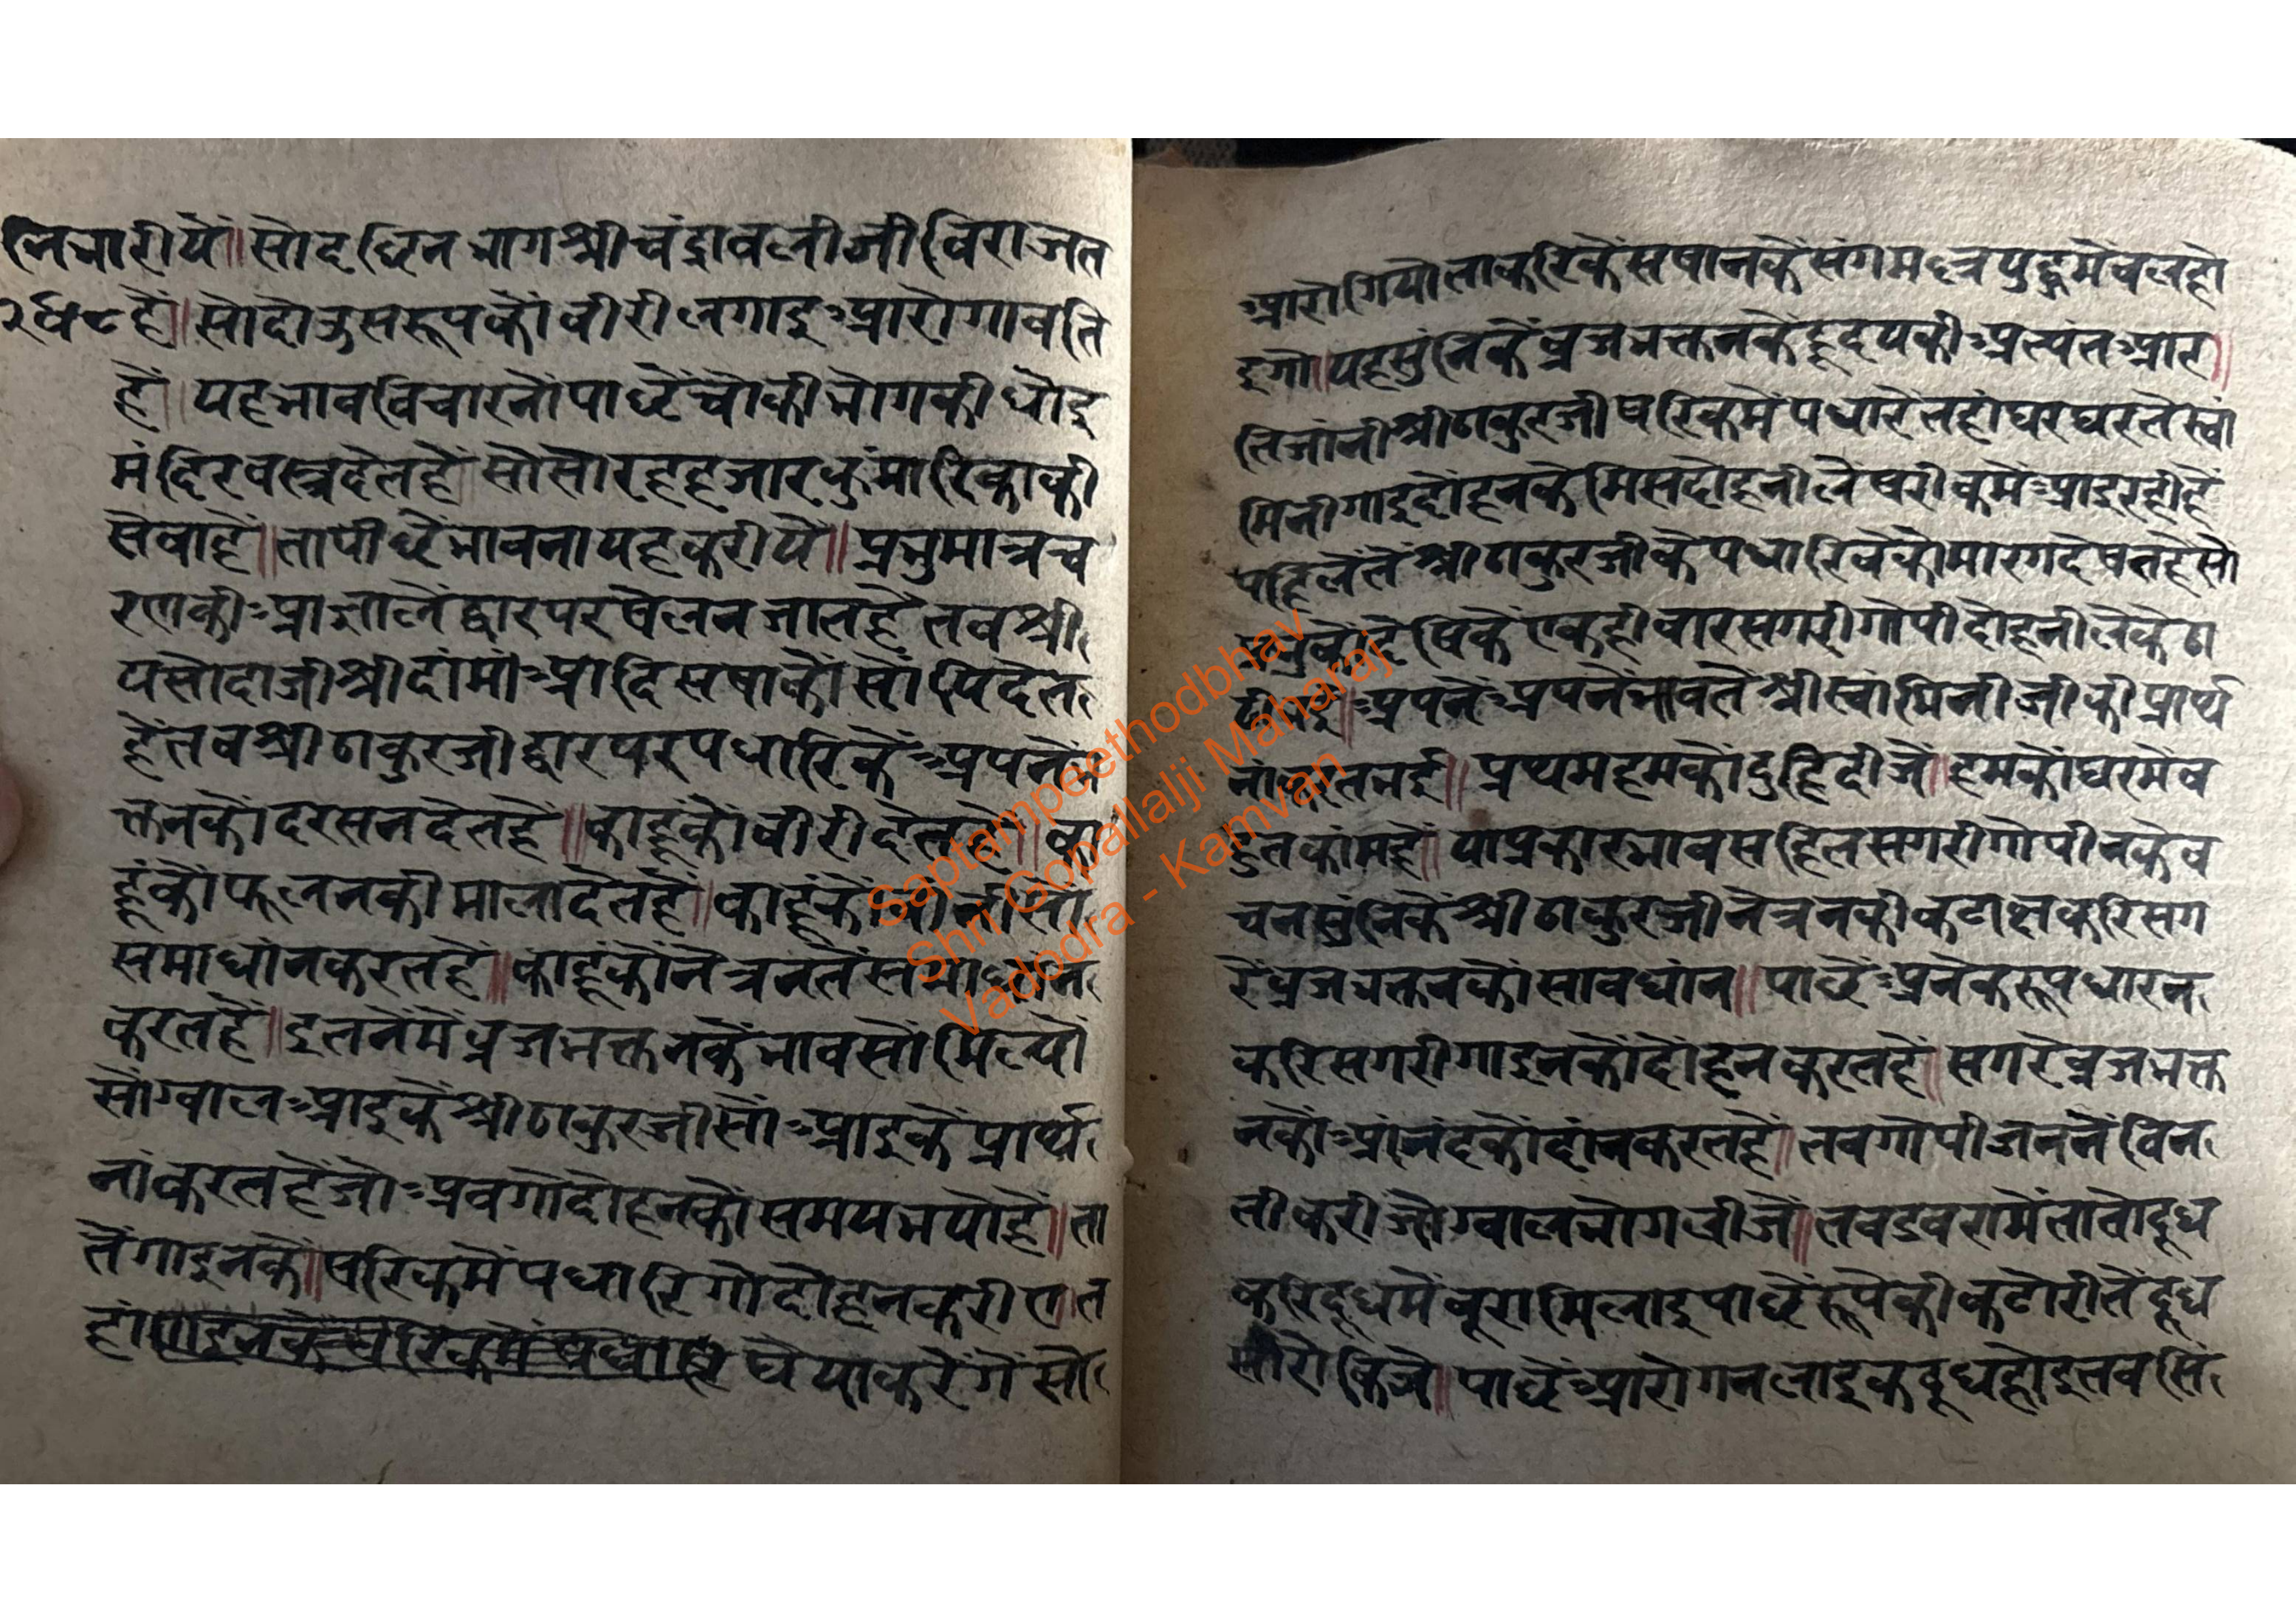 निचारीयें॥ सोदछिनभागश्रीचंद्रावलीजीविराजत
हैं॥ सोदोउसरूपकोंवीरीलगाइआरोगावति
हैं॥ यहभावविचारनोंपाछेंचोकीभोगकीधोइ
मंदिरवस्त्रदेतहें सोसोरहहजारकुंमारिकाकी
सेवाहें॥ तापीछेंभावनायहकरीये॥ प्रभुमात्रच
रणकीआज्ञालेंद्वारपरषेलनजातहें तबश्री
यसोदाजीश्रीदांमांआदिसषाकोंसोंपिदेत
हेंतवश्रीठाकुरजीद्वारपरपधारिकेंअपनेंभ
क्तनकोंदरसनदेतहें॥ काहूंकोंवीरीदेतहें॥ का
हूंकोंफूलनकीमालादेतहें॥ काहूंकों
समाधांनकरतहें॥ काहूंकोंनेत्रनतेंसमाधांन
करतहें॥ इतनेंमेंव्रजभक्तनकेंभावसोंमिल्यो
सोग्वालआइकेंश्रीठाकुरजीसोंआइकेंप्रार्थ
नांकरतहेंजोअवगोदोहनकोंसमयभयोहे॥ ता
तेंगाइनकें॥ षरिकमेंपधारिगोदोहनकरीए॥ त
हां घेयाकरेंगेंसो
आरोगियोताकरिकेंसषानकेंसंगमल्लयुद्धमेंवलहो
इगो॥ यहसुंनिकेंव्रजभक्तनकेंहृदयकीअत्यंतआर॥
तिजांनीश्रीठाकुरजीषरिकमेंपधारेंतहांघरघरतेंस्वां
मिनीगाइदोहनकेमिसदोहनीलेंषरीकमेंआइरहीहें
पहिलेंतेंश्रीठाकुरजीकेपधारिवेकोंमारगदेषतहेंसो
प्रभुकोंदेषिकेंएकहीवारसगरीगोपीदोहनीलेकेंठा
ढीभई॥ अपनेंअपनेंभावतेंश्रीस्वांमिनीजीकीप्रार्थ
नांकरतभई॥ प्रथमहमकोंदुहिदीजें॥ हमकोंघरमेंव
हुतकांमहें॥ याप्रकारभावसहितसगरीगोपीनकेव
चनसुंनिकेंश्रीठाकुरजीनेत्रनकीकटाक्षकरिसग
रेंव्रजभक्तनकोंसावधांन॥ पाछेंअनेकरूपधारन
करिसगरीगाइनकोंदोहनकरतहें॥ सगरेव्रजभक्त
नकोंआंनंदकोंदांनकरतहें॥ तवगोपीजननेंविन
तीकरीजोग्वालभोगलीजें॥ तवडवरामेंतातोदूध
करिदूधमेंबूरामिलाइपाछेंरूपेकीकटोरीतेंदूध
सीरोकिजें॥ पाछेंआरोगनलाइकदूधहोइतवसिं